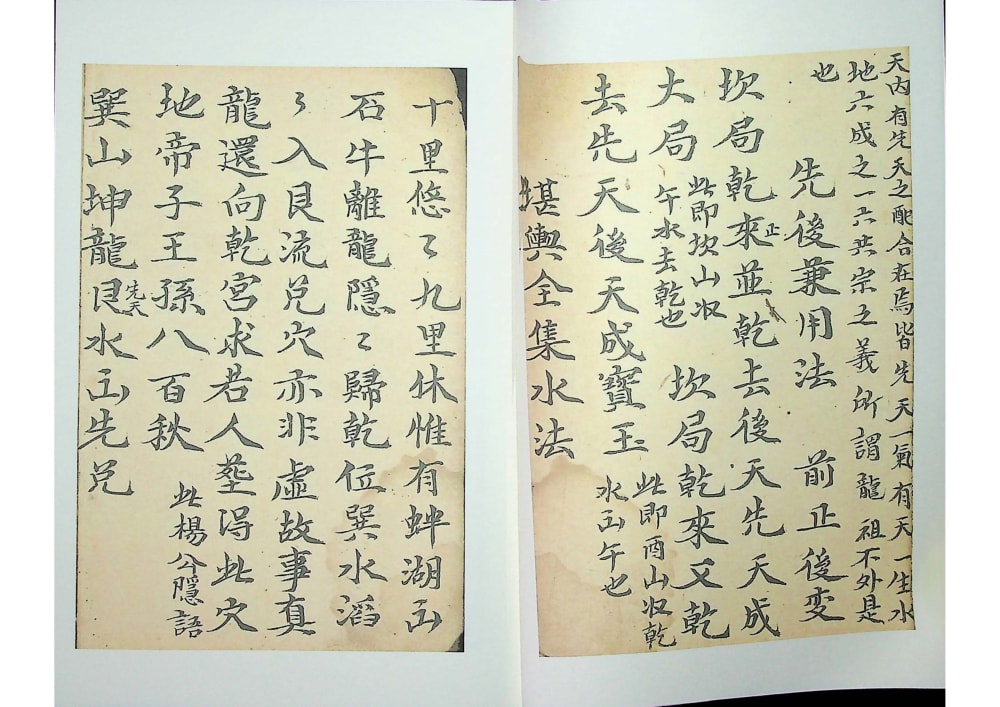 天內有先天之配合在焉皆先天一氣有天一生水
地六成之一六共宗之義所謂龍祖不外是
也
先後兼用法 前正後変
坎局乾來並乾去後天先天成
正
大局 此即坎山収午水去乾也 坎局乾來又乾
去先天後天成寶玉 此即酉山収乾水出午也
堪輿全集水法
十里悠〻九里休惟有蚌湖出
石牛離龍隱〻歸乾位巽水滔
〻入艮流兌穴亦非虛故事真
龍還向乾宮求若人塟得此穴
地帝子王孫八百秋 此楊公隱語
巽山坤龍艮水出先兌
先天